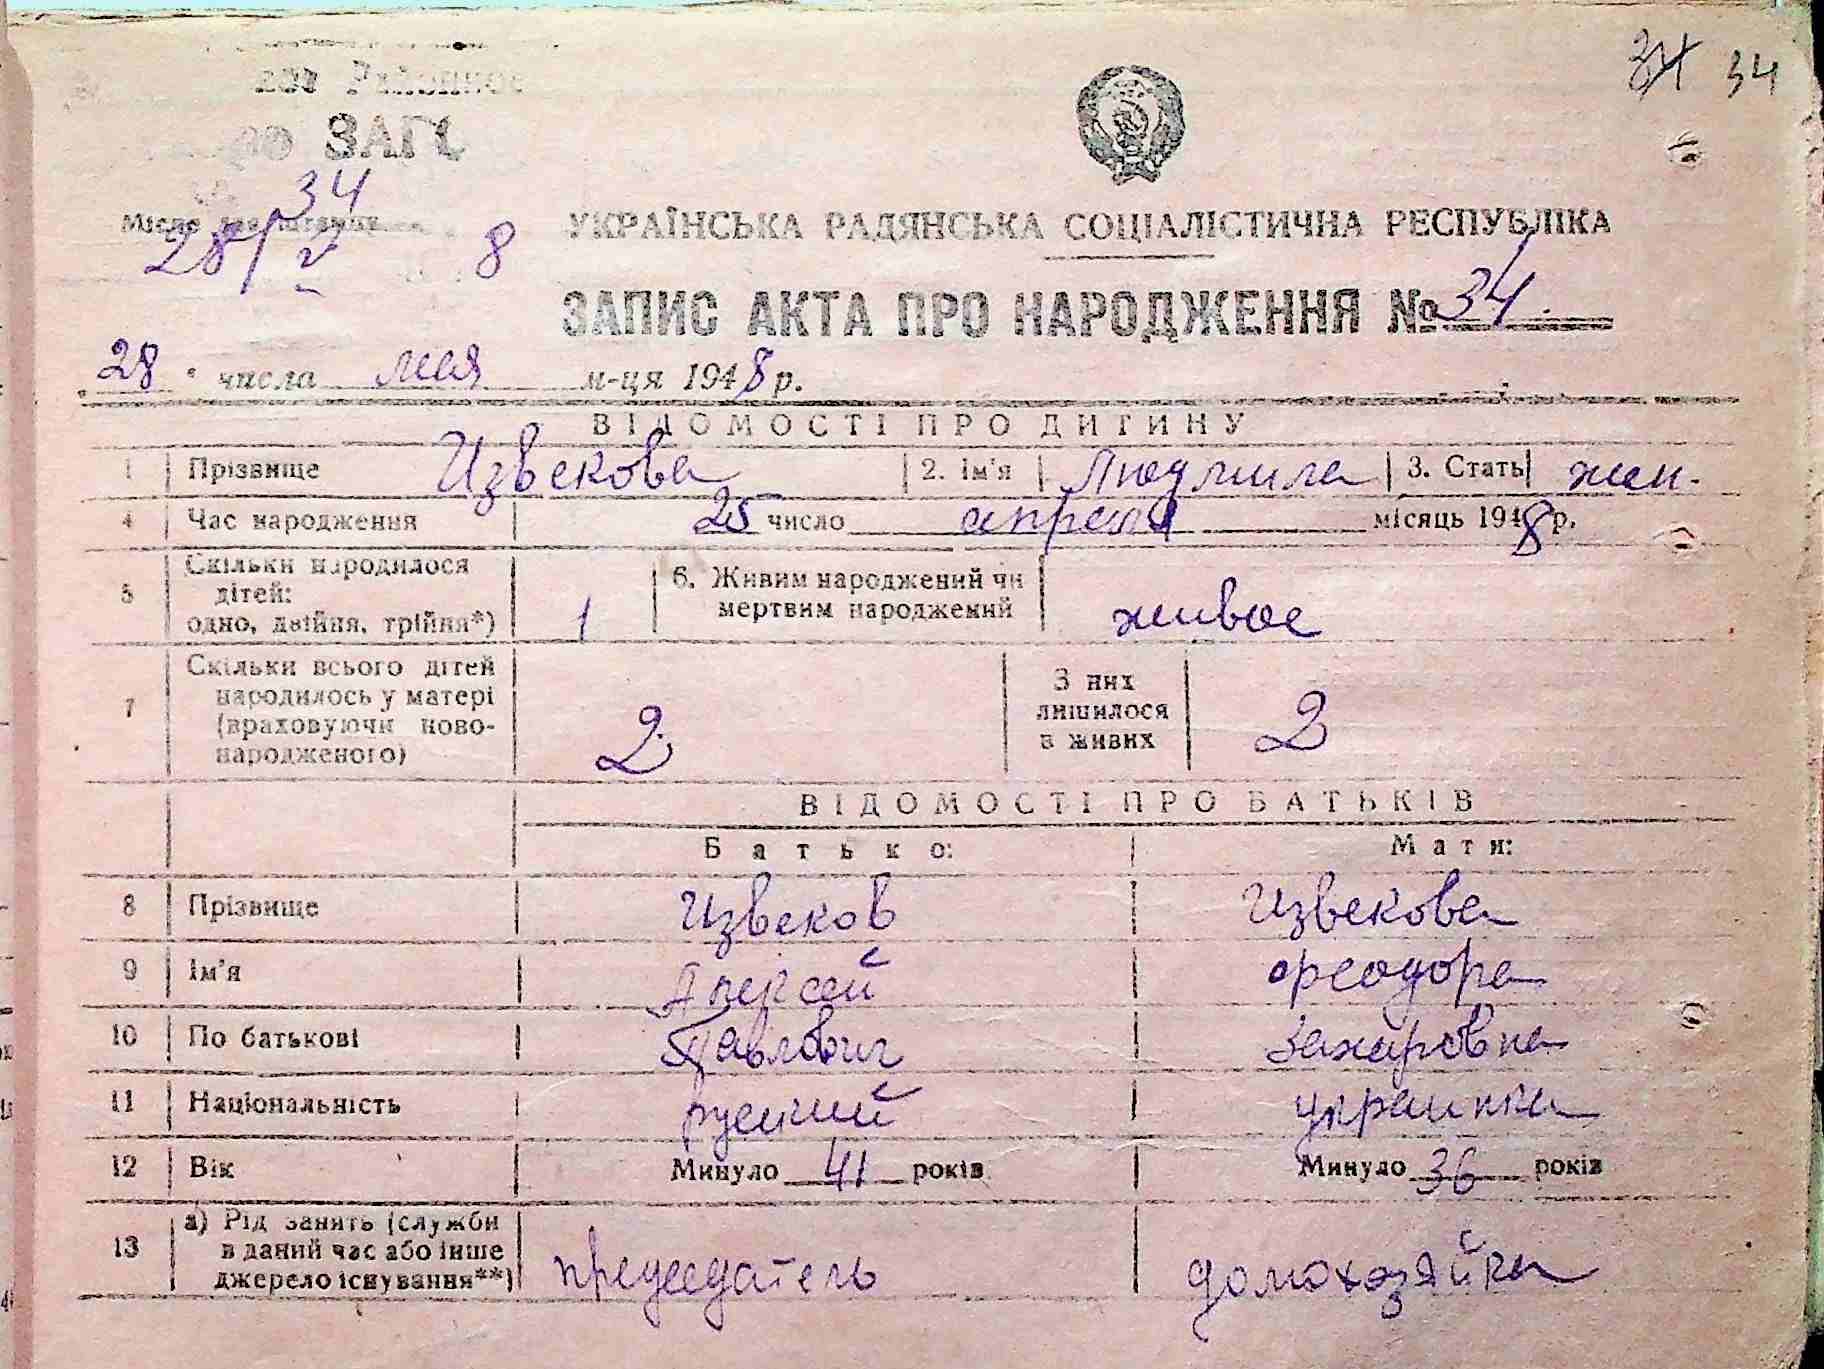 34 34
ЗАГС
34
28/V 8
УКРАЇНСЬКА РАДЯНСЬКА СОЦІАЛІСТИЧНА РЕСПУБЛІКА
ЗАПИС АКТА ПРО НАРОДЖЕННЯ № 34.
"28" числа мая м-ця 1948 р.
ВІДОМОСТІ ПРО ДИТИНУ
1 Прізвище Извекова 2. Ім'я Людмила 3. Стать жен.
4 Час народження 25 число апреля місяць 1948 р.
5 Скільки народилося дітей: одно, двійня, трійня*) 1 6. Живим народжений чи мертвим народжений живое
7 Скільки всього дітей народилось у матері (враховуючи новонародженого) 2 З них лишилося в живих 2
ВІДОМОСТІ ПРО БАТЬКІВ
Батько: Мати:
8 Прізвище Извеков Извекова
9 Ім'я Алексей Феодора
10 По батькові Павлович Захаровна
11 Національність русский украинка
12 Вік Минуло 41 років Минуло 36 років
13 а) Рід занять (служби в даний час або інше джерело існування**) председатель домохозяйка